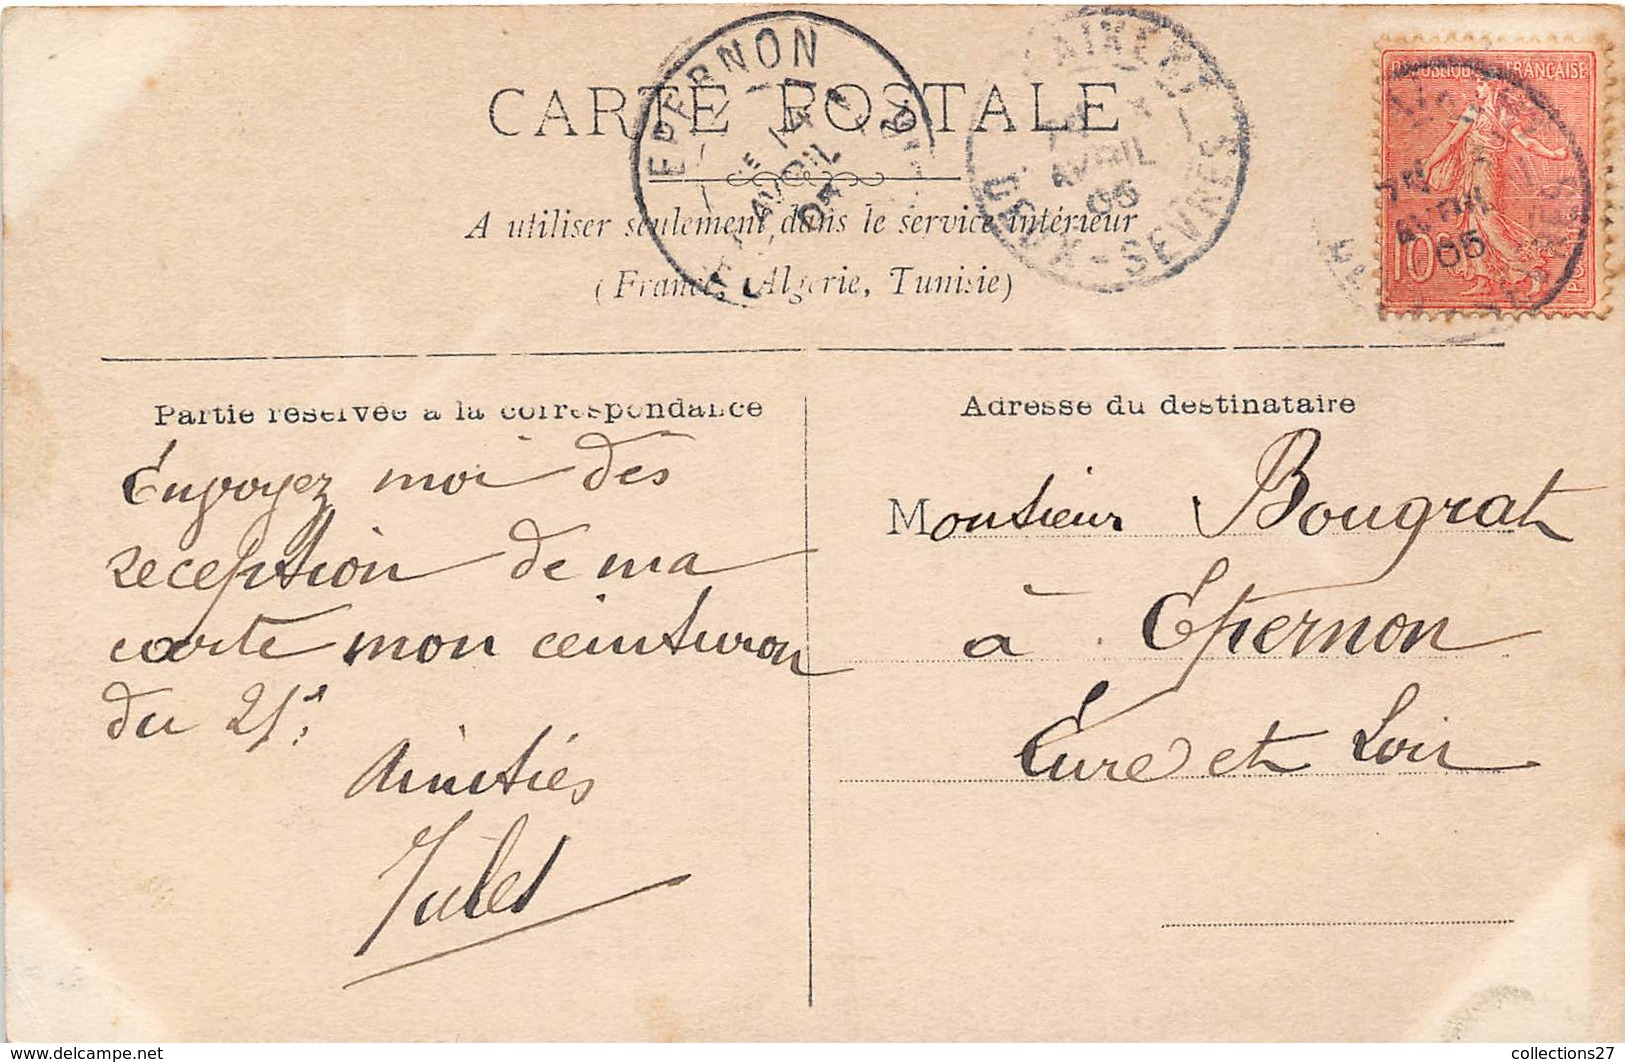 CARTE POSTALE
A utiliser seulement dans le service intérieur
(France, Algérie, Tunisie)
EPERNON
AVRIL
05
AVRIL
05
DEUX-SEVRES
REPUBLIQUE FRANÇAISE
10
AVRIL
05
Partie réservée à la correspondance
Envoyez moi dès
reception de ma
carte mon ceinturon
du 21e
Amitiés
Jules
Adresse du destinataire
Monsieur Bougrat
à Epernon
Eure et Loir
www.delcampe.net
collections27